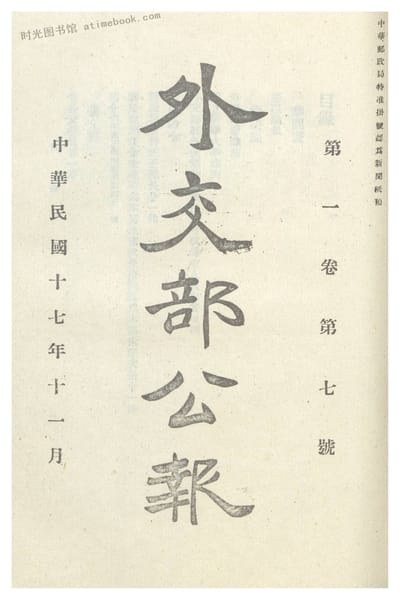 时光图书馆 atimebook.com
中華郵政局特准掛號認爲新聞紙類
第一卷第七號
外交部公報
中華民國十七年十一月